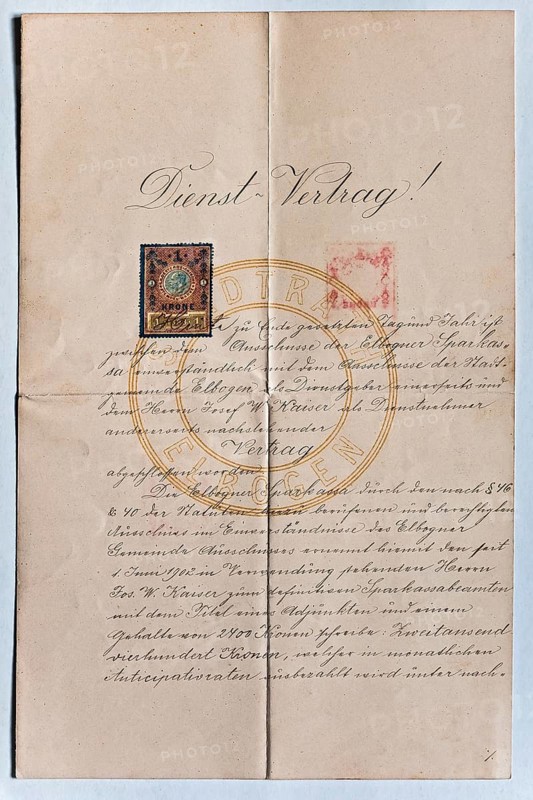 Dienst-Vertrag!
1
KRONE
STADTRAT
ELBOGEN
Heute zu Ende gesetzten Tag und Jahr ist
zwischen dem Ausschusse der Elbogner Sparkas-
sa einverständlich mit dem Ausschusse der Stadt-
gemeinde Elbogen als Dienstgeber einerseits und
dem Herrn Josef W. Kaiser als Dienstnehmer
andererseits nachstehender
Vertrag
abgeschlossen worden
Die Elbogner Sparkassa durch den nach § 46
& 40 der Statuten hiezu berufenen und berechtigten
Ausschuss im Einverständnisse des Elbogner
Gemeinde Ausschusses ernennt hiemit den seit
1. Juni 1902 in Verwendung stehenden Herrn
Jos. W. Kaiser zum definitiven Sparkassabeamten
mit dem Titel eines Adjunkten und einem
Gehalte von 2400 Kronen schreibe: Zweitausend
vierhundert Kronen, welcher in monatlichen
Anticipativraten ausbezahlt wird unter nach-
./.
PHOTO12